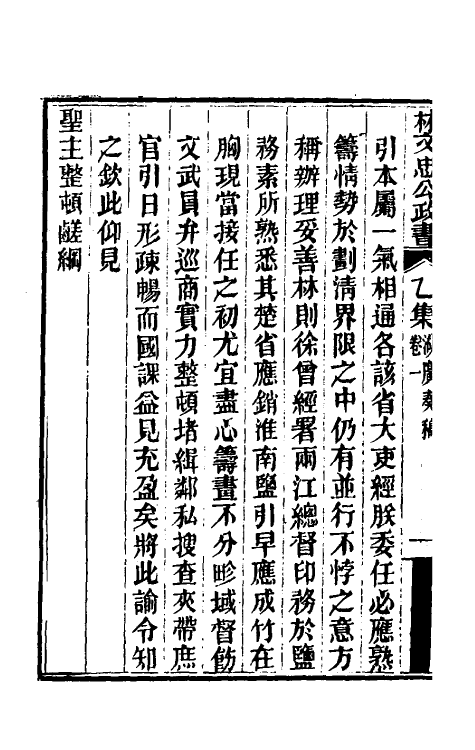 林文忠公政書 乙集 湖廣奏稿 卷一 一
引本屬一氣相通各該省大吏經朕委任必應熟
籌情勢於劃清界限之中仍有並行不悖之意方
稱辦理妥善林則徐曾經署兩江總督印務於鹽
務素所熟悉其楚省應銷淮南鹽引早應成竹在
胸現當接任之初尤宜盡心籌畫不分畛域督飭
文武員弁巡商實力整頓堵緝鄰私搜查夾帶庶
官引日形疎暢而國課益見充盈矣將此諭令知
之欽此仰見
聖主整頓鹺綱